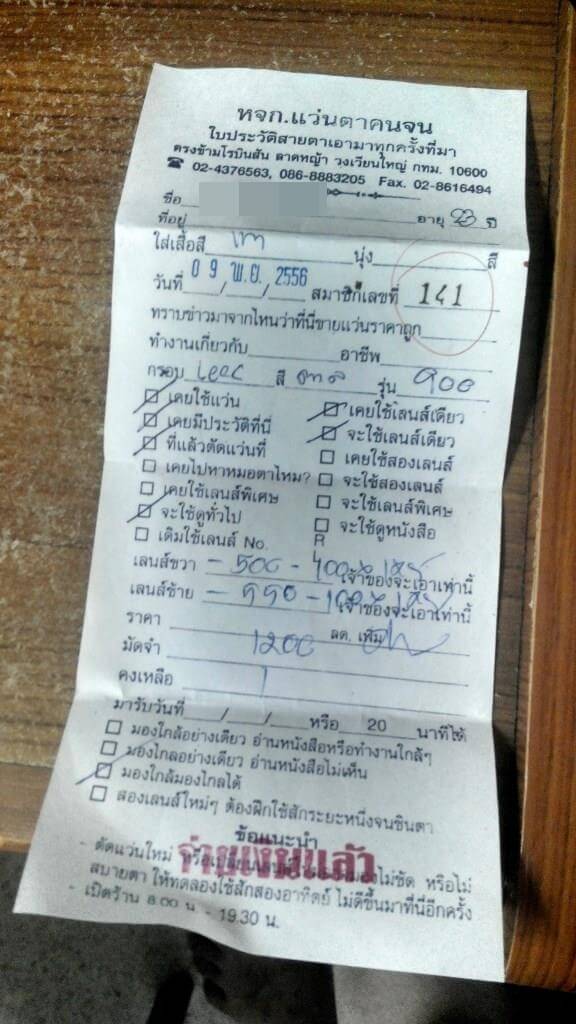 หจก.แว่นตาคนจน
ใบประวัติสายตาเอามาทุกครั้งที่มา
ตรงข้ามโรบินสัน ลาดหญ้า วงเวียนใหญ่ กทม. 10600
☎ 02-4376563, 086-8883205 Fax. 02-8616494
ชื่อ
ที่อยู่ อายุ ปี
ใส่เสื้อสี เทา นุ่ง สี
วันที่ 09 พ.ย. 2556 สมาชิกเลขที่ 141
ทราบข่าวมาจากไหนว่าที่นี่ขายแว่นราคาถูก
ทำงานเกี่ยวกับ อาชีพ
กรอบ สี รุ่น 900
เคยใช้แว่น เคยใช้เลนส์เดียว
เคยมีประวัติที่นี่ จะใช้เลนส์เดียว
ที่แล้วตัดแว่นที่ เคยใช้สองเลนส์
เคยไปหาหมอตาไหม? จะใช้สองเลนส์
เคยใช้เลนส์พิเศษ จะใช้เลนส์พิเศษ
จะใช้ดูทั่วไป จะใช้ดูหนังสือ
เดิมใช้เลนส์ No. R
เลนส์ขวา -500-400 เจ้าของจะเอาเท่านี้
เลนส์ซ้าย เจ้าของจะเอาเท่านี้
ราคา 1200 ลด. เพิ่ม
มัดจำ
คงเหลือ
มารับวันที่ / / / หรือ 20 นาทีได้
มองไกลอย่างเดียว อ่านหนังสือหรือทำงานใกล้ๆ
มองไกลอย่างเดียว อ่านหนังสือไม่เห็น
มองใกล้มองไกลได้
สองเลนส์ใหม่ๆ ต้องฝึกใช้สักระยะหนึ่งจนชินตา
ข้อแนะนำ
จ่ายเงินแล้ว
- ตัดแว่นใหม่ หรือเปลี่ยนเลนส์ มองไม่ชัด หรือไม่
สบายตา ให้ทดลองใช้สักสองอาทิตย์ ไม่ดีขึ้นมาที่นี่อีกครั้ง
- เปิดร้าน 8.00 น. - 19.30 น.